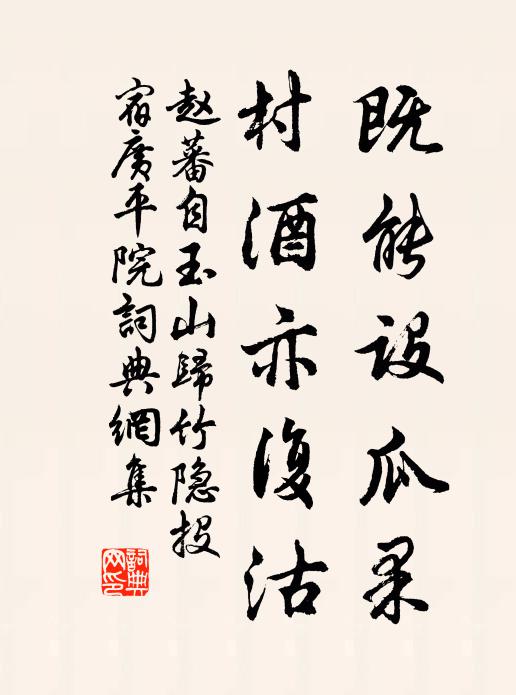 既能设瓜果
村酒亦復沽
赵蕃自玉山歸竹隐投
宿廣平院詞典網集
詞典網印